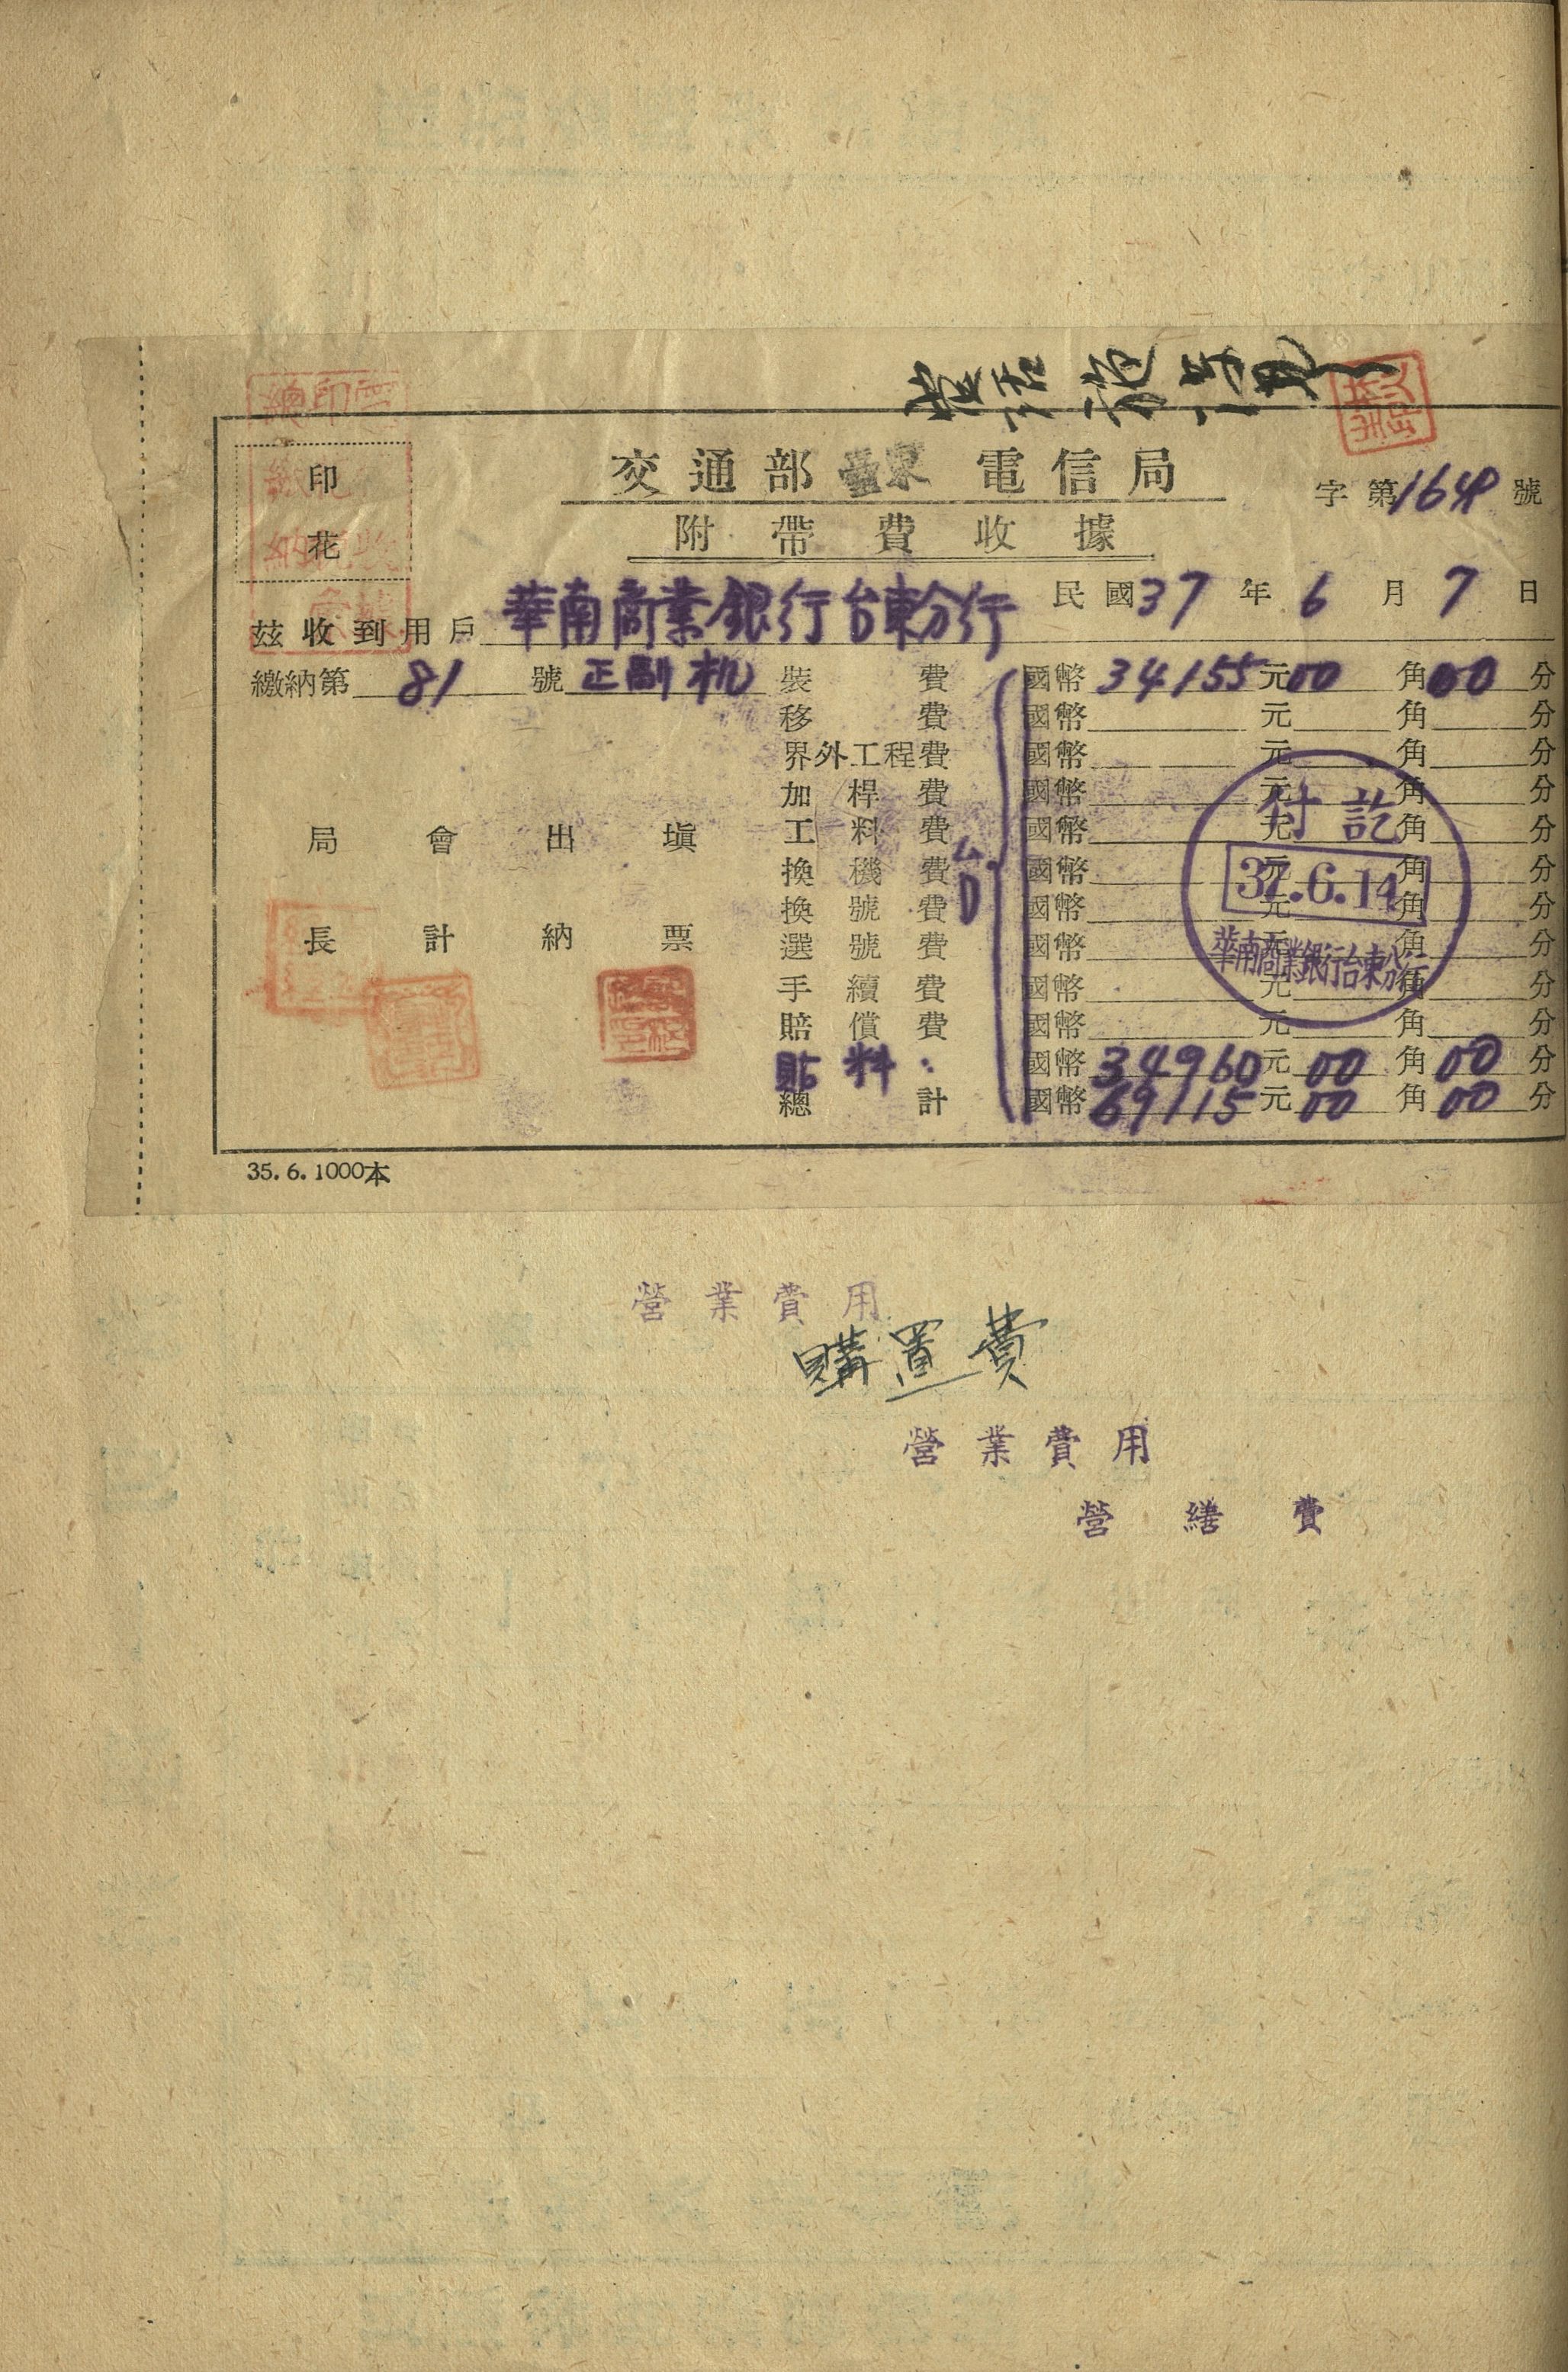 電話裝置費
交通部臺東電信局
字第1648號
附帶費收據
印花
民國37年6月7日
茲收到用戶華南商業銀行台東分行
繳納第81號正副机
裝費 國幣34155元00角00分
移費 國幣元角分
界外工程費 國幣元角分
加桿費 國幣元角分
工料費 國幣元角分
換機費 國幣元角分
換號費 國幣元角分
選號費 國幣元角分
手續費 國幣元角分
賠償費 國幣元角分
貼料: 國幣34960元00角00分
總計 國幣69115元00角00分
台
局長 會計 出納 填票
付訖
37.6.14
華南商業銀行台東分行
35.6.1000本
營業費用
購置費
營業費用
營繕費